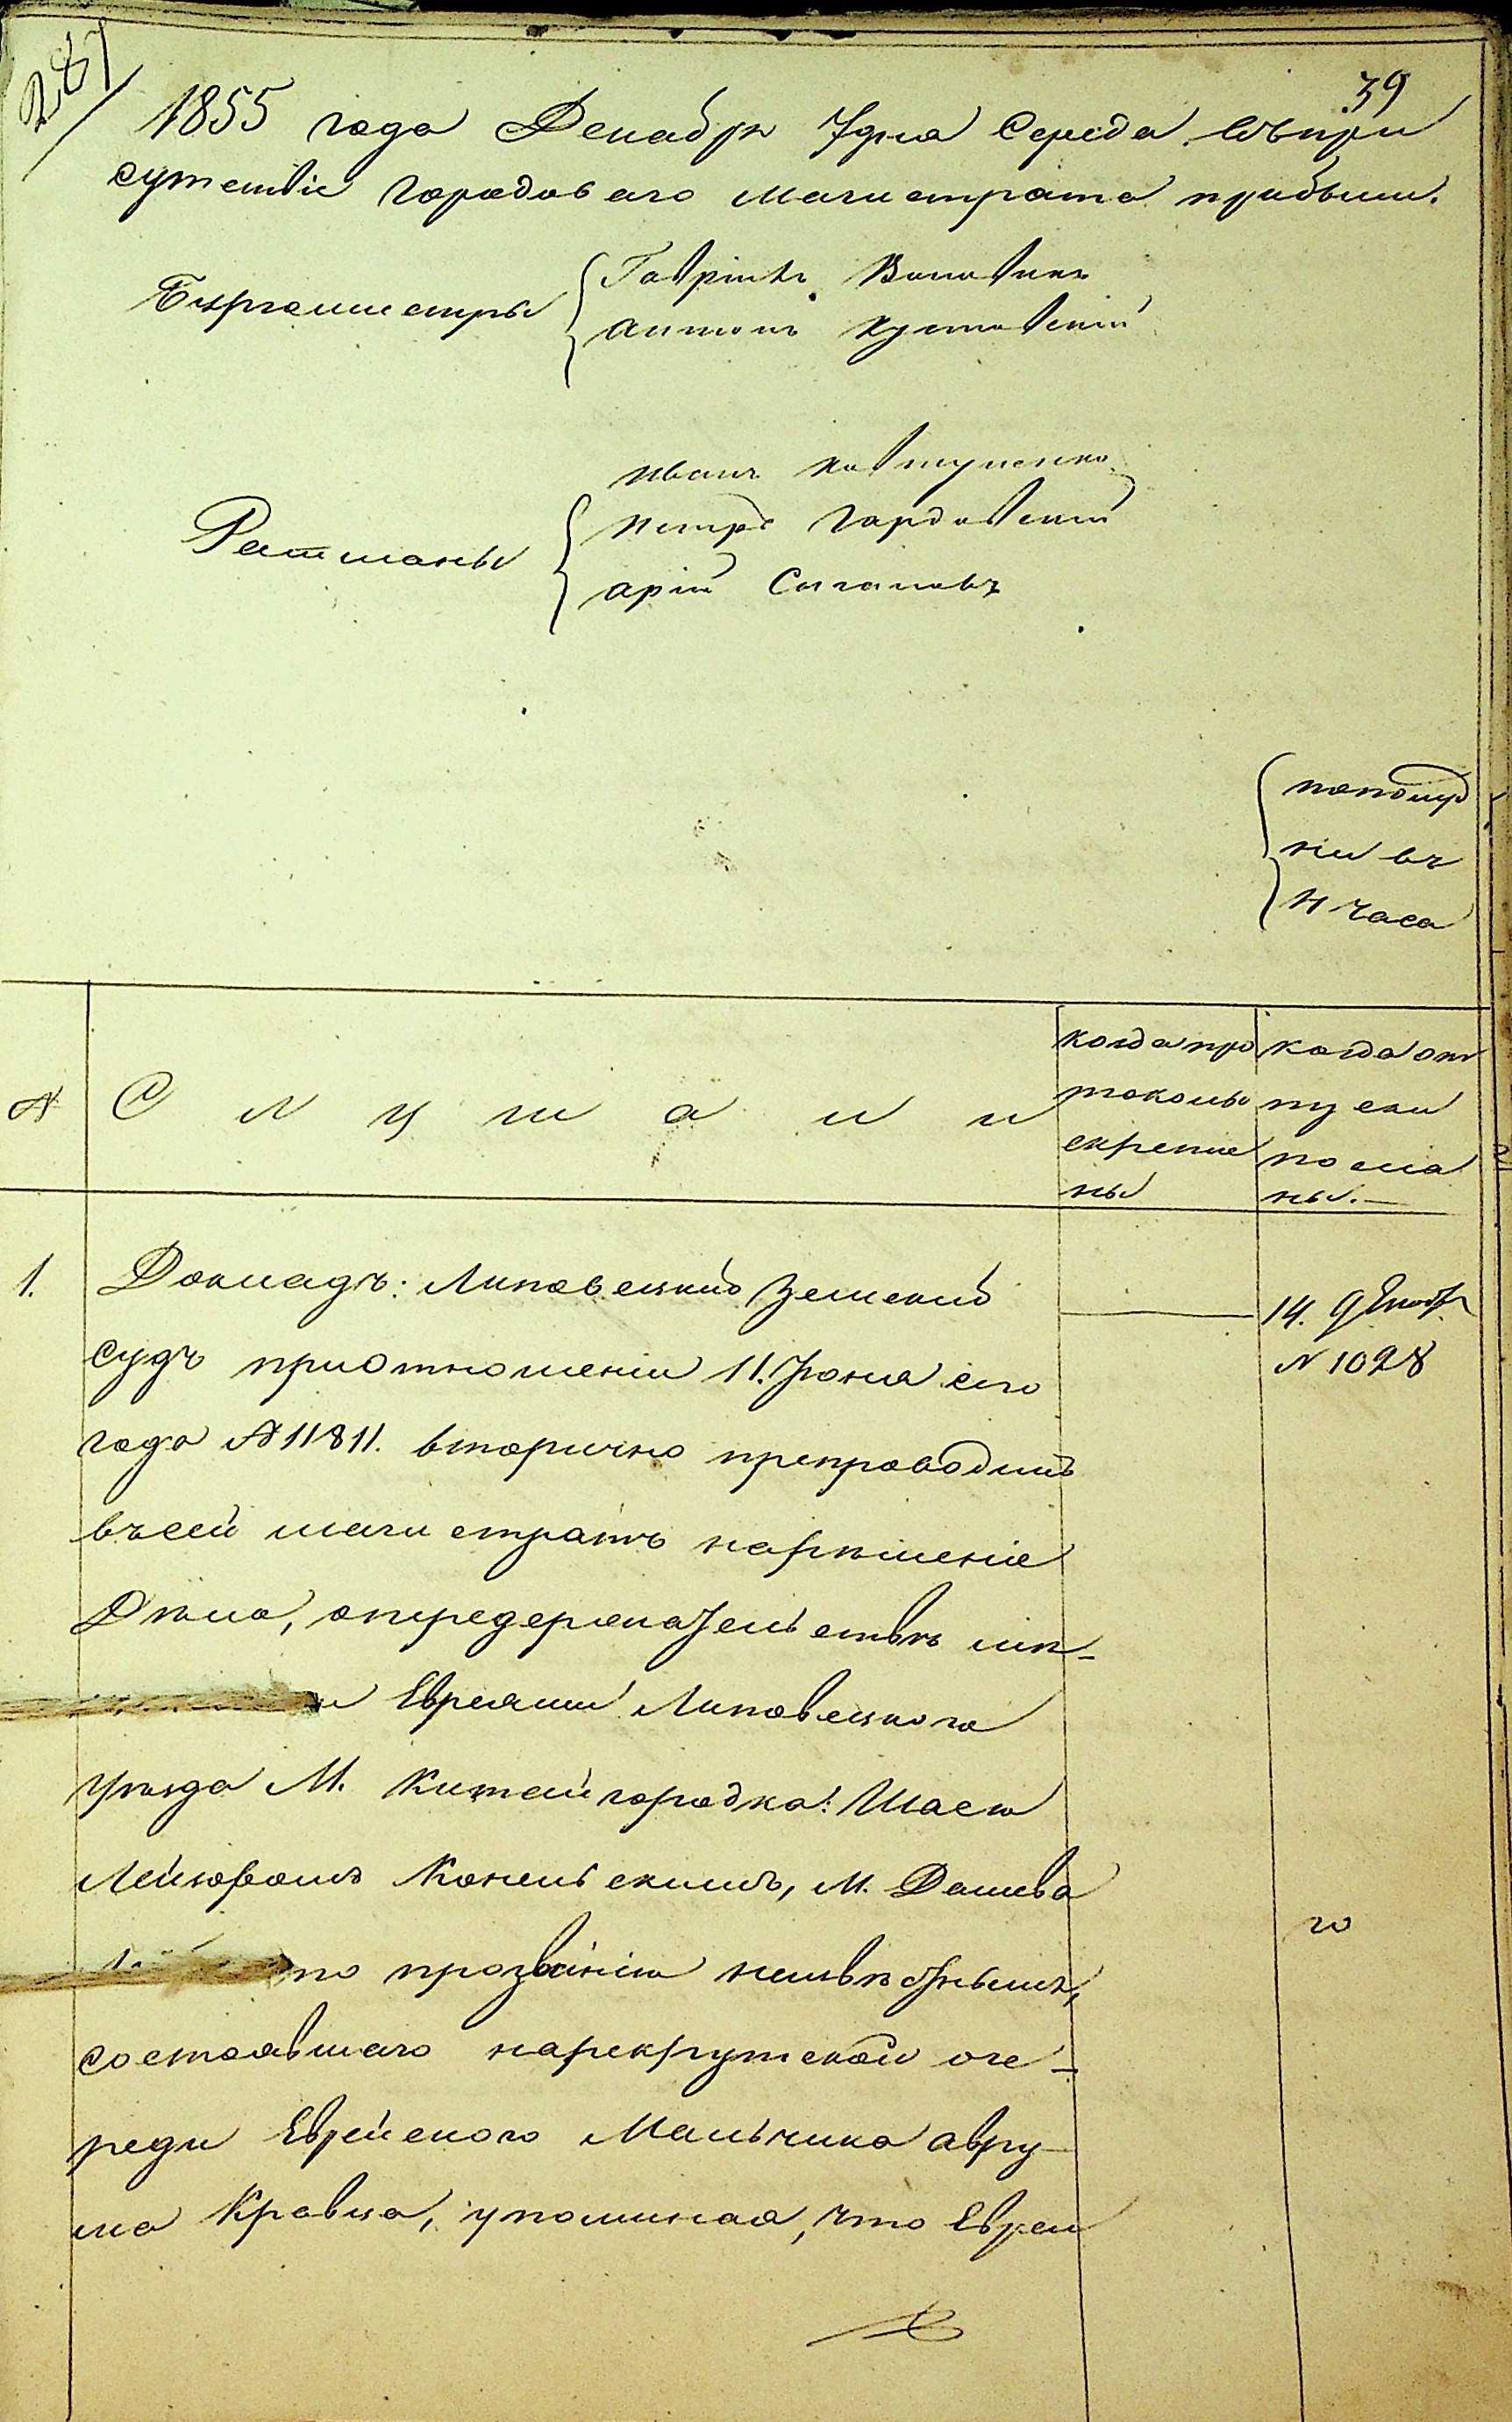 267
39
1855 года Декабря 7 дня Середа. Въ при
сутствіе городоваго магистрата прибыли.
Бургомистры
Антонъ Кустовскій
Ратманы
Иванъ Ковтуненко
Петръ Гордовскій
Арій Сыгаловъ
пополуд
ни въ
часа
№
Слушали
когда про
токолы
скрепле
ны
когда от
пуски
посла
ны.—
1.
Докладъ: Липовецкій Земскій
судъ при отношеніи 11. Іюня сего
года № 11811. вторично препроводилъ
въ сей магистратъ на решеніе
Дело, о передержательстве
Евреями Липовецкого
уезда М. Китайгородка: Шаею
Лейзоромъ Конельскимъ, М. Дашева
по прозванію неизвестнымъ,
состоявшаго на рекрутской оче-
реди Еврейского Мальчика Авру-
ма Кравца, упоминая, что Евреи
14. Декабр
№ 1028
го